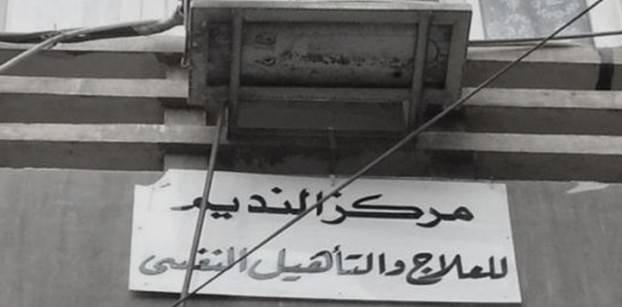 مركز النديم
للعلاج والتأهيل النفسى